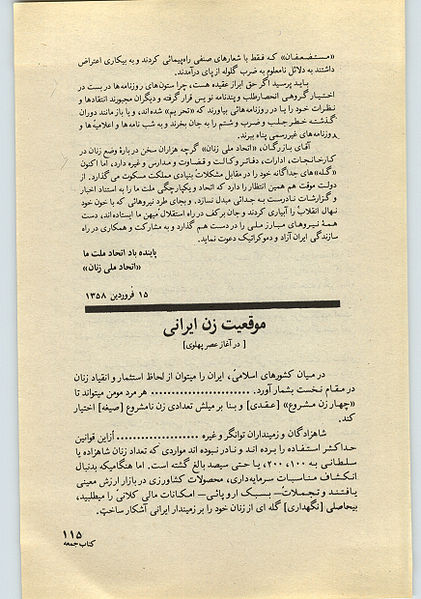 «مستضعفان» که فقط با شعارهای صنفی راه‌پیمائی کردند و به بیکاری اعتراض
داشتند به دلائل نامعلوم به ضرب گلوله از پای درآمدند.
باید پرسید اگر حق ابراز عقیده هست، چرا ستون‌های روزنامه‌ها در بست در
اختیار گروهی انحصارطلب و پندنامه نویس قرار گرفته و دیگران مجبورند انتقادها و
نظرات خود را با در روزنامه‌هائی بیاورند که «تحریم» شده‌اند، و یا باز مانند دوران
گذشته خطر جلب و ضرب و شتم را به جان بخرند و به شب نامه‌ها و اعلامیه‌ها و
روزنامه‌های غیررسمی پناه ببرند.
آقای بازرگان، «اتحاد ملی زنان» گرچه هزاران سخن درباره وضع زنان در
کارخانجات، ادارات، دفاتر وکالت و قضاوت و مدارس و غیره دارد، اما اکنون
«گله»های جداگانه خود را در مقابل مشکلات بنیادی مملکت مسکوت می گذارد. از
دولت موقت هم همین انتظار را دارد که اتحاد و یکپارچگی ملت ما را به استناد اخبار
و گزارشات نادرست به جدائی مبدل نسازد، و بجای طرد نیروهائی که با خون خود
نهال انقلاب را آبیاری کردند و جان برکف در راه استقلال میهن ما ایستاده‌اند، دست
همهٔ نیروهای مبارز ملی را در دست هم گذارد و به مشارکت و همکاری در راه
سازندگی ایران آزاد و دموکراتیک دعوت نماید.
پاینده باد اتحاد ملت ما
«اتحاد ملی زنان»
۱۵ فروردین ۱۳۵۸
موقعیت زن ایرانی
[در آغاز عصر پهلوی]
در میان کشورهای اسلامی، ایران را میتوان از لحاظ استثمار و انقیاد زنان
در مقام نخست بشمار آورد. .......................... هر مرد مومن میتواند تا
«چهار زن مشروع» [عقدی] و بنا بر میلش تعدادی زن نامشروع [صیغه] اختیار
کند.
شاهزادگان و زمینداران توانگر و غیره ...................... از این قوانین
حداکثر استفاده را برده اند و نادر نبوده اند مواردی که تعداد زنان شاهزاده یا
سلطانی به ۱۰۰، ۲۰۰، یا حتی سیصد بالغ گشته است. اما هنگامیکه بدنبال
انکشاف مناسبات سرمایه‌داری، محصولات کشاورزی در بازار ارزش معینی
یافتند و تجملات بسبک اروپائی امکانات مالی کلانی را میطلبید،
بیحاصلی [نگهداری] گله ای از زنان خود را بر زمیندار ایرانی آشکار ساخت.
۱۱۵
کتاب جمعه